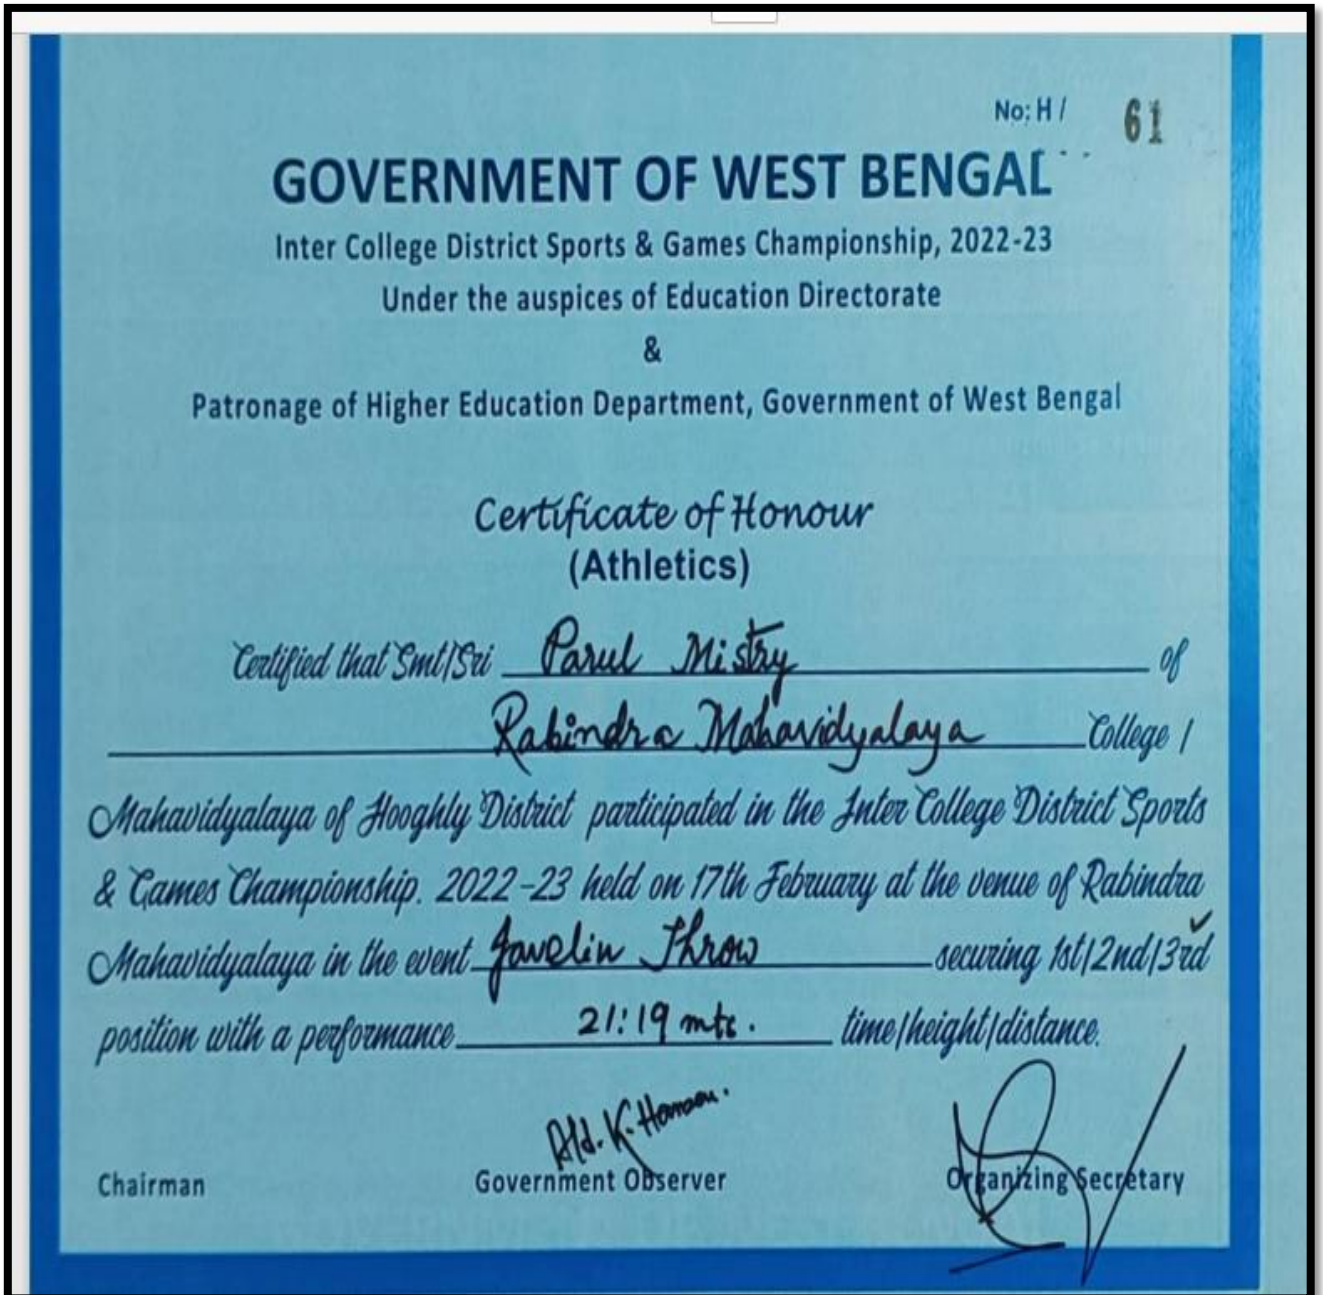 No: H / 61
GOVERNMENT OF WEST BENGAL
Inter College District Sports & Games Championship, 2022-23
Under the auspices of Education Directorate
&
Patronage of Higher Education Department, Government of West Bengal
Certificate of Honour
(Athletics)
Certified that Smt/Sri Parul Mistry of
Rabindra Mahavidyalaya College /
Mahavidyalaya of Hooghly District participated in the Inter College District Sports
& Games Championship. 2022-23 held on 17th February at the venue of Rabindra
Mahavidyalaya in the event Javelin Throw securing 1st/2nd/3rd
position with a performance 21:19 mtr. time/height/distance.
Chairman Government Observer Organizing Secretary